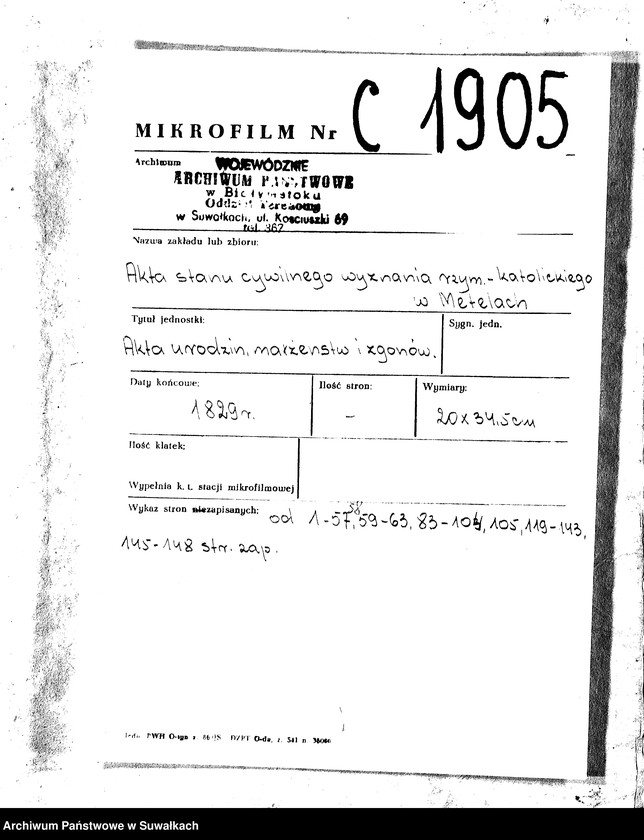 MIKROFILM Nr C 1905
Archiwum
WOJEWÓDZKIE
ARCHIWUM PAŃSTWOWE
w Białymstoku
Oddział Terenowy
w Suwałkach, ul. Kościuszki 69
tel. 367
Nazwa zakładu lub zbioru:
Akta stanu cywilnego wyznania rzym.-katolickiego
w Metelach
Tytuł jednostki:
Sygn. jedn.
Akta urodzin, małżeństw i zgonów.
Daty końcowe:
Ilość stron:
Wymiary:
1829r.
–
20x34,5cm
Ilość klatek:
Wypełnia k. t. stacji mikrofilmowej
Wykaz stron niezapisanych:
od 1-57, 58 59-63, 83-104, 105, 119-143,
145-148 str. zap.
Archiwum Państwowe w Suwałkach